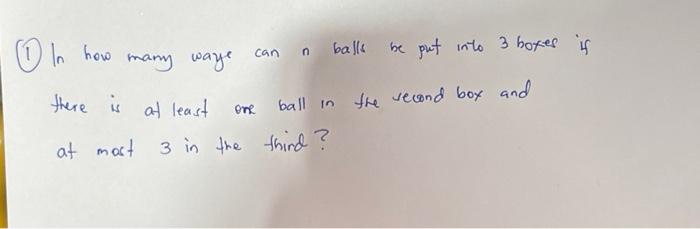 ① In how many ways can n balls be put into 3 boxes if
there is at least one ball in the second box and
at most 3 in the third?